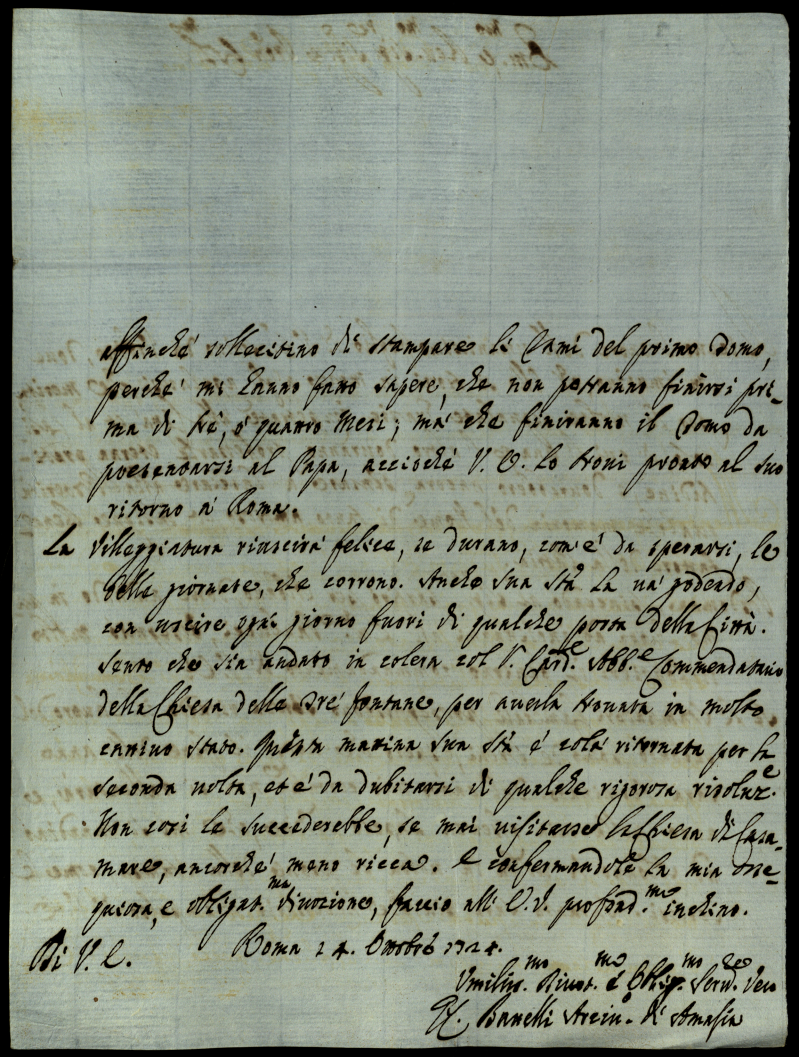 affinché sollecitino di stampare li Rami del primo Tomo,
perche' mi hanno fatto sapere, che non potranno finirsi pri-
ma di trè, ò quattro mesi; mà che finiranno il Tomo da
presentarsi al Papa, acciochè V. E. lo trovi pronto al suo
ritorno à Roma.
La Villeggiatura riuscirà felice, se durano, com'è da sperarsi, le
belle giornate, che corrono. Anche sua Stà la và godendo,
con uscire ogni giorno fuori di qualche porta della Città.
Sento che sia andato in colera col S. Card.e Abb.e Commendatario
della Chiesa delle Tre' fontane, per averla trovata in molto
cattivo stato. Questa mattina sua Stà è colà ritornata per la
seconda volta, et è da dubitarsi di qualche rigorosa risoluz.e
Non così le succederebbe, se mai visitasse la Chiesa di Casa-
mare, ancorchè meno ricca. E confermandole la mia osse-
quiosa, e obligat.ma divozione, faccio all' E. V. profond.mo inchino.
Di V. E. Roma 14. Ottobre 1724.
Umiliss.mo Divot.mo é Oblig.mo Serv.re Vero
Arciv.o di Amasia